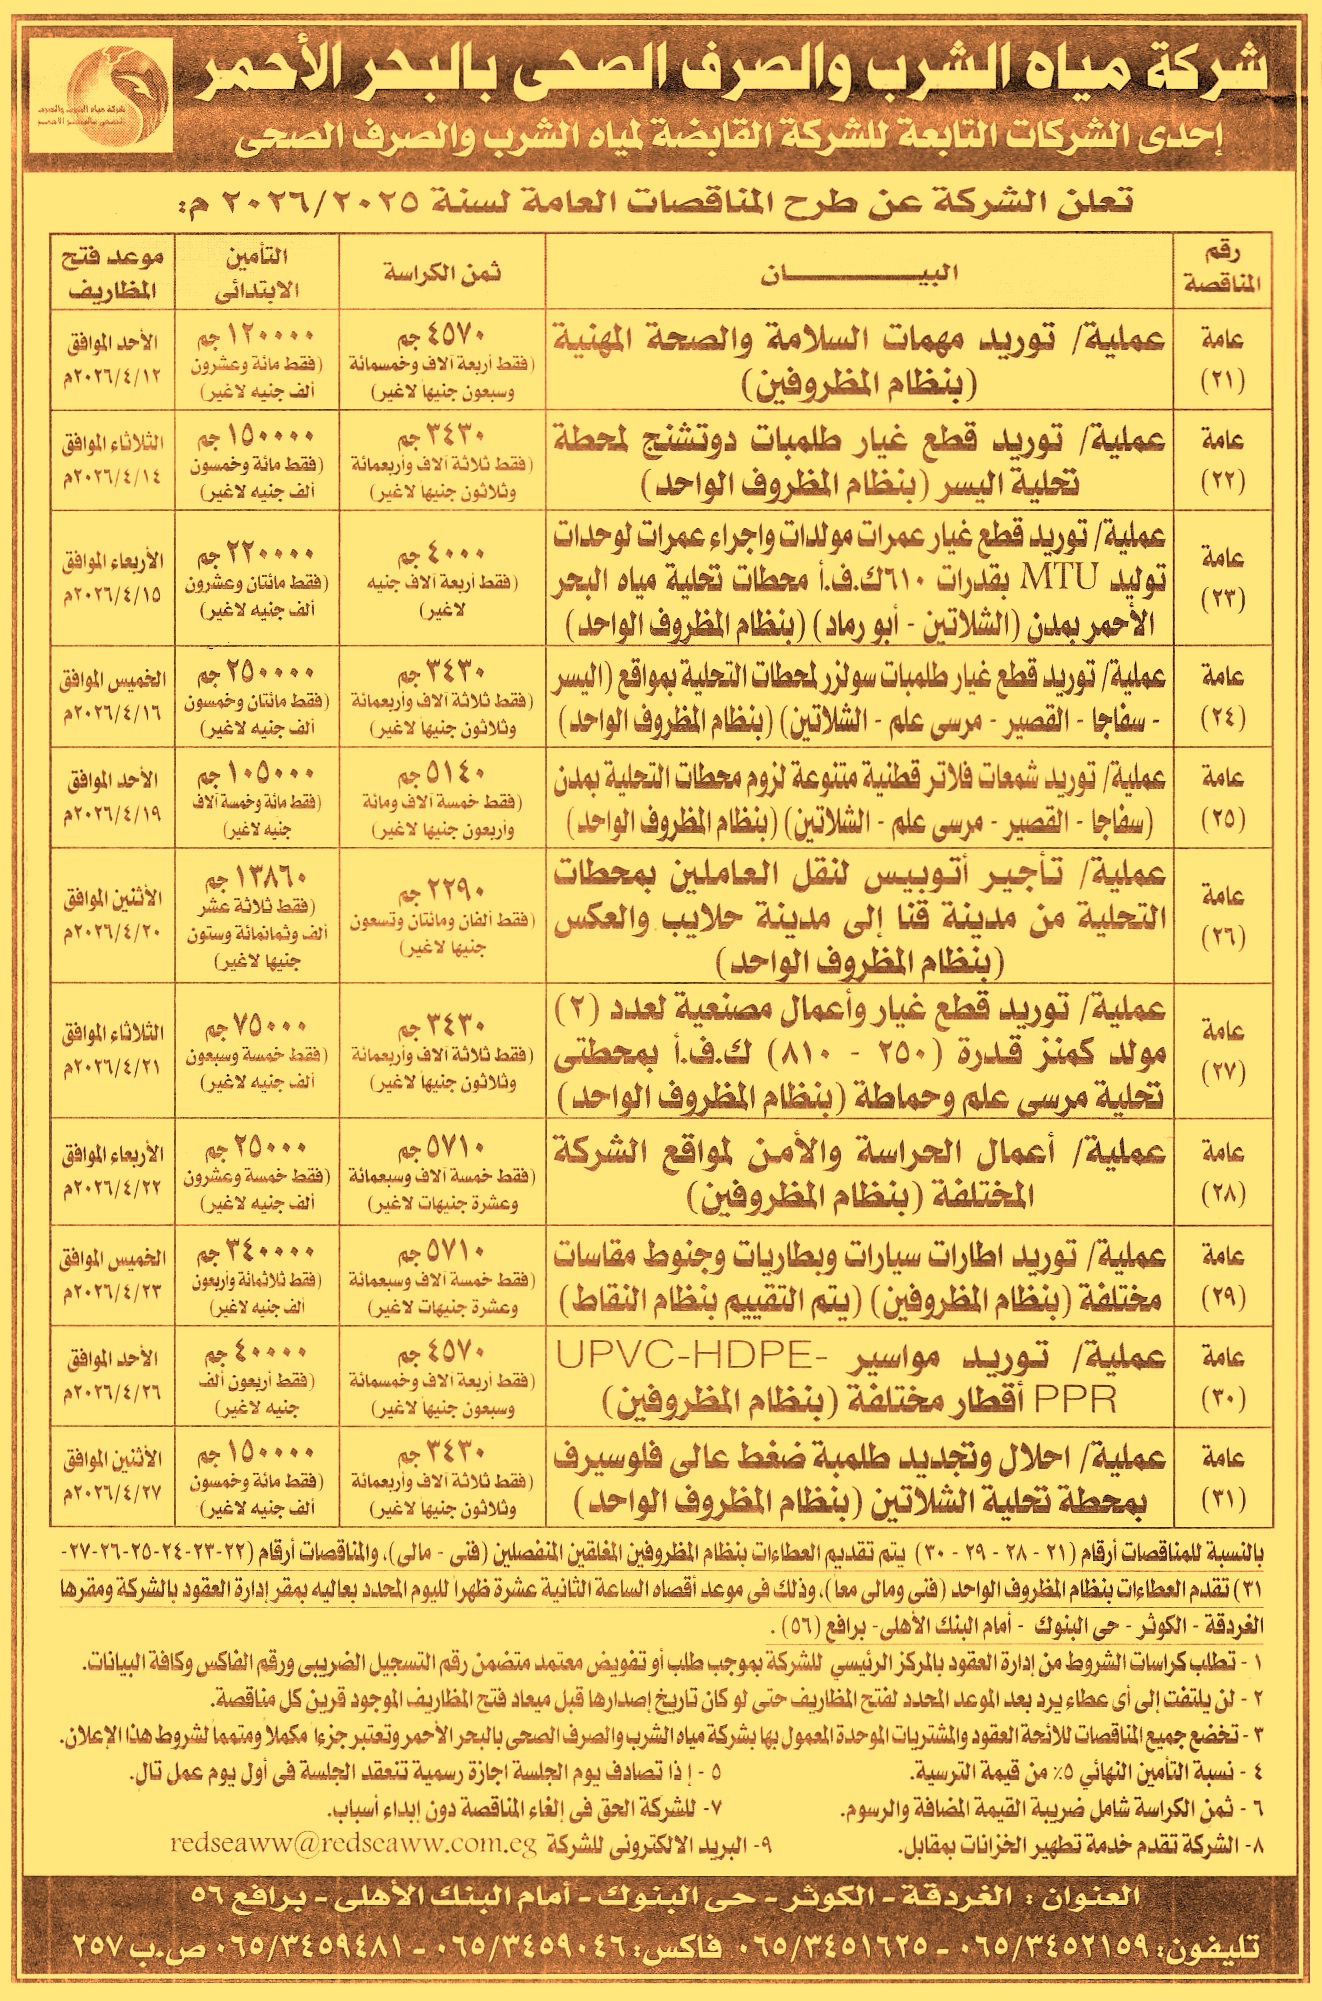 شركة مياه الشرب والصرف الصحى بالبحر الأحمر
إحدى الشركات التابعة للشركة القابضة لمياه الشرب والصرف الصحى
شركة مياه الشرب والصرف
الصحى بالبحر الأحمر
تعلن الشركة عن طرح المناقصات العامة لسنة ٢٠٢٦/٢٠٢٥ م:
رقم المناقصة
البيـــــــــــان
ثمن الكراسة
التأمين الابتدائى
موعد فتح المظاريف
عامة (٢١)
عملية/ توريد مهمات السلامة والصحة المهنية
(بنظام المظروفين)
٤٥٧٠ جم
(فقط أربعة آلاف وخمسمائة
وسبعون جنيهاً لاغير)
١٢٠٠٠٠ جم
(فقط مائة وعشرون
ألف جنيه لاغير)
الأحد الموافق
٢٠٢٦/٤/١٢م
عامة (٢٢)
عملية/ توريد قطع غيار طلمبات دوتشنج لمحطة
تحلية اليسر (بنظام المظروف الواحد)
٣٤٣٠ جم
(فقط ثلاثة آلاف وأربعمائة
وثلاثون جنيهاً لاغير)
١٥٠٠٠٠ جم
(فقط مائة وخمسون
ألف جنيه لاغير)
الثلاثاء الموافق
٢٠٢٦/٤/١٤م
عامة (٢٣)
عملية/ توريد قطع غيار عمرات مولدات واجراء عمرات لوحدات
توليد MTU بقدرات ٦١٠ك.ف.أ محطات تحلية مياه البحر
الأحمر بمدن (الشلاتين - أبو رماد) (بنظام المظروف الواحد)
٤٠٠٠ جم
(فقط أربعة آلاف جنيه
لاغير)
٢٢٠٠٠٠ جم
(فقط مائتان وعشرون
ألف جنيه لاغير)
الأربعاء الموافق
٢٠٢٦/٤/١٥م
عامة (٢٤)
عملية/ توريد قطع غيار طلمبات سولزر لمحطات التحلية بمواقع (اليسر
- سفاجا - القصير - مرسى علم - الشلاتين) (بنظام المظروف الواحد)
٣٤٣٠ جم
(فقط ثلاثة آلاف وأربعمائة
وثلاثون جنيهاً لاغير)
٢٥٠٠٠٠ جم
(فقط مائتان وخمسون
ألف جنيه لاغير)
الخميس الموافق
٢٠٢٦/٤/١٦م
عامة (٢٥)
عملية/ توريد شمعات فلاتر قطنية متنوعة لزوم محطات التحلية بمدن
(سفاجا - القصير - مرسى علم - الشلاتين) (بنظام المظروف الواحد)
٥١٤٠ جم
(فقط خمسة آلاف ومائة
وأربعون جنيهاً لاغير)
١٠٥٠٠٠ جم
(فقط مائة وخمسة آلاف
جنيه لاغير)
الأحد الموافق
٢٠٢٦/٤/١٩م
عامة (٢٦)
عملية/ تأجير أتوبيس لنقل العاملين بمحطات
التحلية من مدينة قنا إلى مدينة حلايب والعكس
(بنظام المظروف الواحد)
٢٢٩٠ جم
(فقط ألفان ومائتان وتسعون
جنيها لاغير)
١٣٨٦٠ جم
(فقط ثلاثة عشر
ألف وثمانمائة وستون
جنيها لاغير)
الأثنين الموافق
٢٠٢٦/٤/٢٠م
عامة (٢٧)
عملية/ توريد قطع غيار وأعمال مصنعية لعدد (٢)
مولد كمنز قدرة (٢٥٠ - ٨١٠) ك.ف.أ بمحطتى
تحلية مرسى علم وحماطة (بنظام المظروف الواحد)
٣٤٣٠ جم
(فقط ثلاثة آلاف وأربعمائة
وثلاثون جنيهاً لاغير)
٧٥٠٠٠ جم
(فقط خمسة وسبعون
ألف جنيه لاغير)
الثلاثاء الموافق
٢٠٢٦/٤/٢١م
عامة (٢٨)
عملية/ أعمال الحراسة والأمن لمواقع الشركة
المختلفة (بنظام المظروفين)
٥٧١٠ جم
(فقط خمسة آلاف وسبعمائة
وعشرة جنيهات لاغير)
٢٥٠٠٠ جم
(فقط خمسة وعشرون
ألف جنيه لاغير)
الأربعاء الموافق
٢٠٢٦/٤/٢٢م
عامة (٢٩)
عملية/ توريد اطارات سيارات وبطاريات وجنوط مقاسات
مختلفة (بنظام المظروفين) (يتم التقييم بنظام النقاط)
٥٧١٠ جم
(فقط خمسة آلاف وسبعمائة
وعشرة جنيهات لاغير)
٣٤٠٠٠٠ جم
(فقط ثلاثمائة وأربعون
ألف جنيه لاغير)
الخميس الموافق
٢٠٢٦/٤/٢٣م
عامة (٣٠)
عملية/ توريد مواسير UPVC-HDPE-
PPR أقطار مختلفة (بنظام المظروفين)
٤٥٧٠ جم
(فقط أربعة آلاف وخمسمائة
وسبعون جنيهاً لاغير)
٤٠٠٠٠ جم
(فقط أربعون ألف
جنيه لاغير)
الأحد الموافق
٢٠٢٦/٤/٢٦م
عامة (٣١)
عملية/ احلال وتجديد طلمبة ضغط عالى فلوسيرف
بمحطة تحلية الشلاتين (بنظام المظروف الواحد)
٣٤٣٠ جم
(فقط ثلاثة آلاف وأربعمائة
وثلاثون جنيهاً لاغير)
١٥٠٠٠٠ جم
(فقط مائة وخمسون
ألف جنيه لاغير)
الأثنين الموافق
٢٠٢٦/٤/٢٧م
بالنسبة للمناقصات أرقام (٢١ - ٢٨ - ٢٩ - ٣٠) يتم تقديم العطاءات بنظام المظروفين المغلقين المنفصلين (فنى - مالى)، والمناقصات أرقام (٢٢-٢٣-٢٤-٢٥-٢٦-٢٧-
٣١) تقدم العطاءات بنظام المظروف الواحد (فنى ومالى معاً)، وذلك فى موعد أقصاه الساعة الثانية عشرة ظهراً لليوم المحدد بعاليه بمقر إدارة العقود بالشركة ومقرها
الغردقة - الكوثر - حى البنوك - أمام البنك الأهلى- برافع (٥٦) .
١ - تطلب كراسات الشروط من إدارة العقود بالمركز الرئيسي للشركة بموجب طلب أو تفويض معتمد متضمن رقم التسجيل الضريبى ورقم الفاكس وكافة البيانات.
٢ - لن يلتفت إلى أى عطاء يرد بعد الموعد المحدد لفتح المظاريف حتى لو كان تاريخ إصدارها قبل ميعاد فتح المظاريف الموجود قرين كل مناقصة.
٣ - تخضع جميع المناقصات للائحة العقود والمشتريات الموحدة المعمول بها بشركة مياه الشرب والصرف الصحى بالبحر الأحمر وتعتبر جزءاً مكملاً ومتمماً لشروط هذا الإعلان.
٤ - نسبة التأمين النهائي ٥٪ من قيمة الترسية.
٥ - إذا تصادف يوم الجلسة اجازة رسمية تنعقد الجلسة فى أول يوم عمل تال.
٦ - ثمن الكراسة شامل ضريبة القيمة المضافة والرسوم.
٧- للشركة الحق فى إلغاء المناقصة دون إبداء أسباب.
٨- الشركة تقدم خدمة تطهير الخزانات بمقابل.
٩- البريد الالكترونى للشركة redseaww@redseaww.com.eg
العنوان : الغردقة - الكوثر - حى البنوك - أمام البنك الأهلى - برافع ٥٦
تليفون: ٠٦٥/٣٤٥٢١٥٩ - ٠٦٥/٣٤٥١٦٢٥ فاكس: ٠٦٥/٣٤٥٩٠٤٦ - ٠٦٥/٣٤٥٩٤٨١ ص.ب ٢٥٧